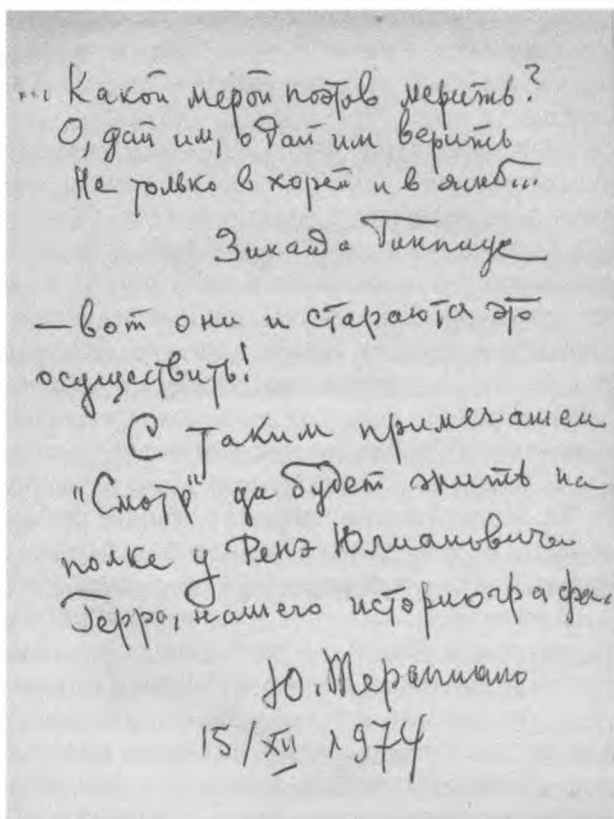 ... Какой мерой поэтов мерить?
О, дай им, о дай им верить
Не только в хорей и в ямб...
Зинаида Гиппиус
— вот они и стараются это
осуществить!
С таким примечанием
"Смотр" да будет жить на
полке у Ренэ Юлиановича
Герра, нашего историографа.
Ю. Терапиано
15/XII 1974